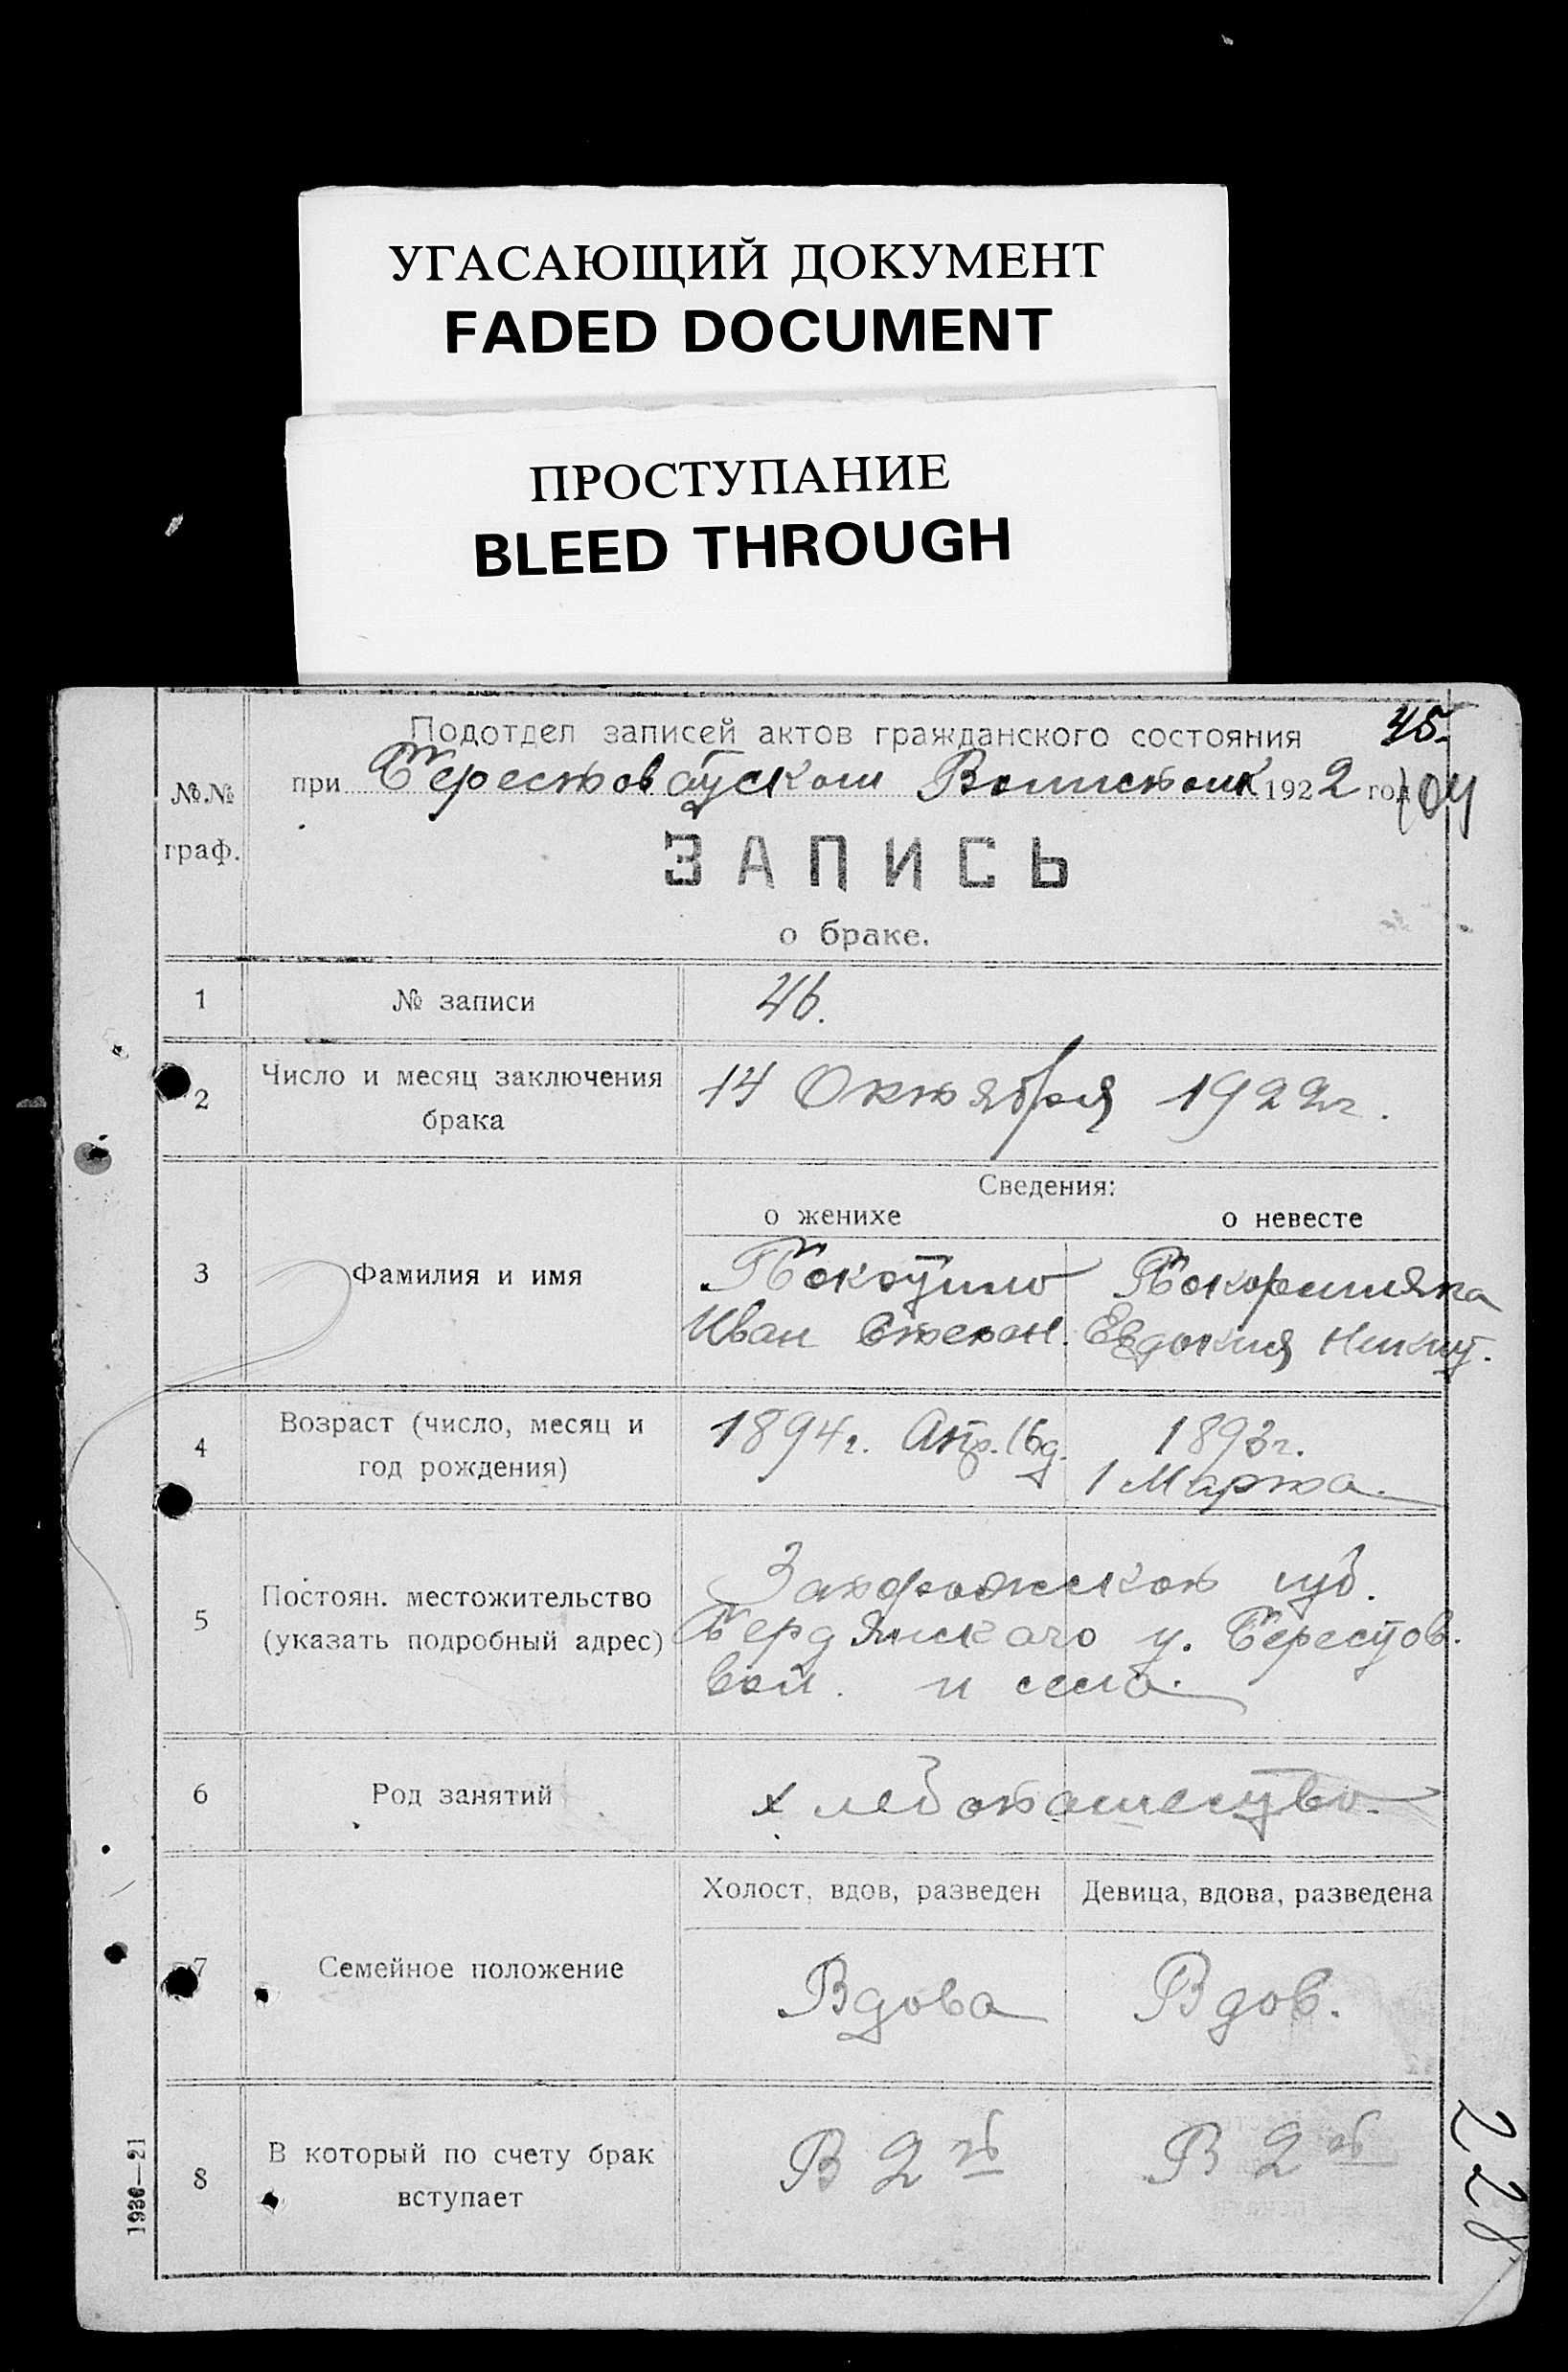 УГАСАЮЩИЙ ДОКУМЕНТ
FADED DOCUMENT
ПРОСТУПАНИЕ
BLEED THROUGH
Подотдел записей актов гражданского состояния
45.
№.№ граф.
при Берестоватском 1922 год
104
ЗАПИСЬ
о браке.
1
№ записи
46.
2
Число и месяц заключения
брака
14 Октября 1922 г.
Сведения:
о женихе
о невесте
3
Фамилия и имя
Иван Степан.
Евдокия Никит.
4
Возраст (число, месяц и
год рождения)
1894 г. Апр. 16 д.
1893 г.
1 Марта.
5
Постоян. местожительство
(указать подробный адрес)
Запорожской губ.
Бердянского у. Берестов.
вол. и села.
6
Род занятий
хлебопашество.
7
Семейное положение
Холост, вдов, разведен
Девица, вдова, разведена
Вдова
Вдов.
8
В который по счету брак
вступает
В 2й
В 2й
1936—21
228